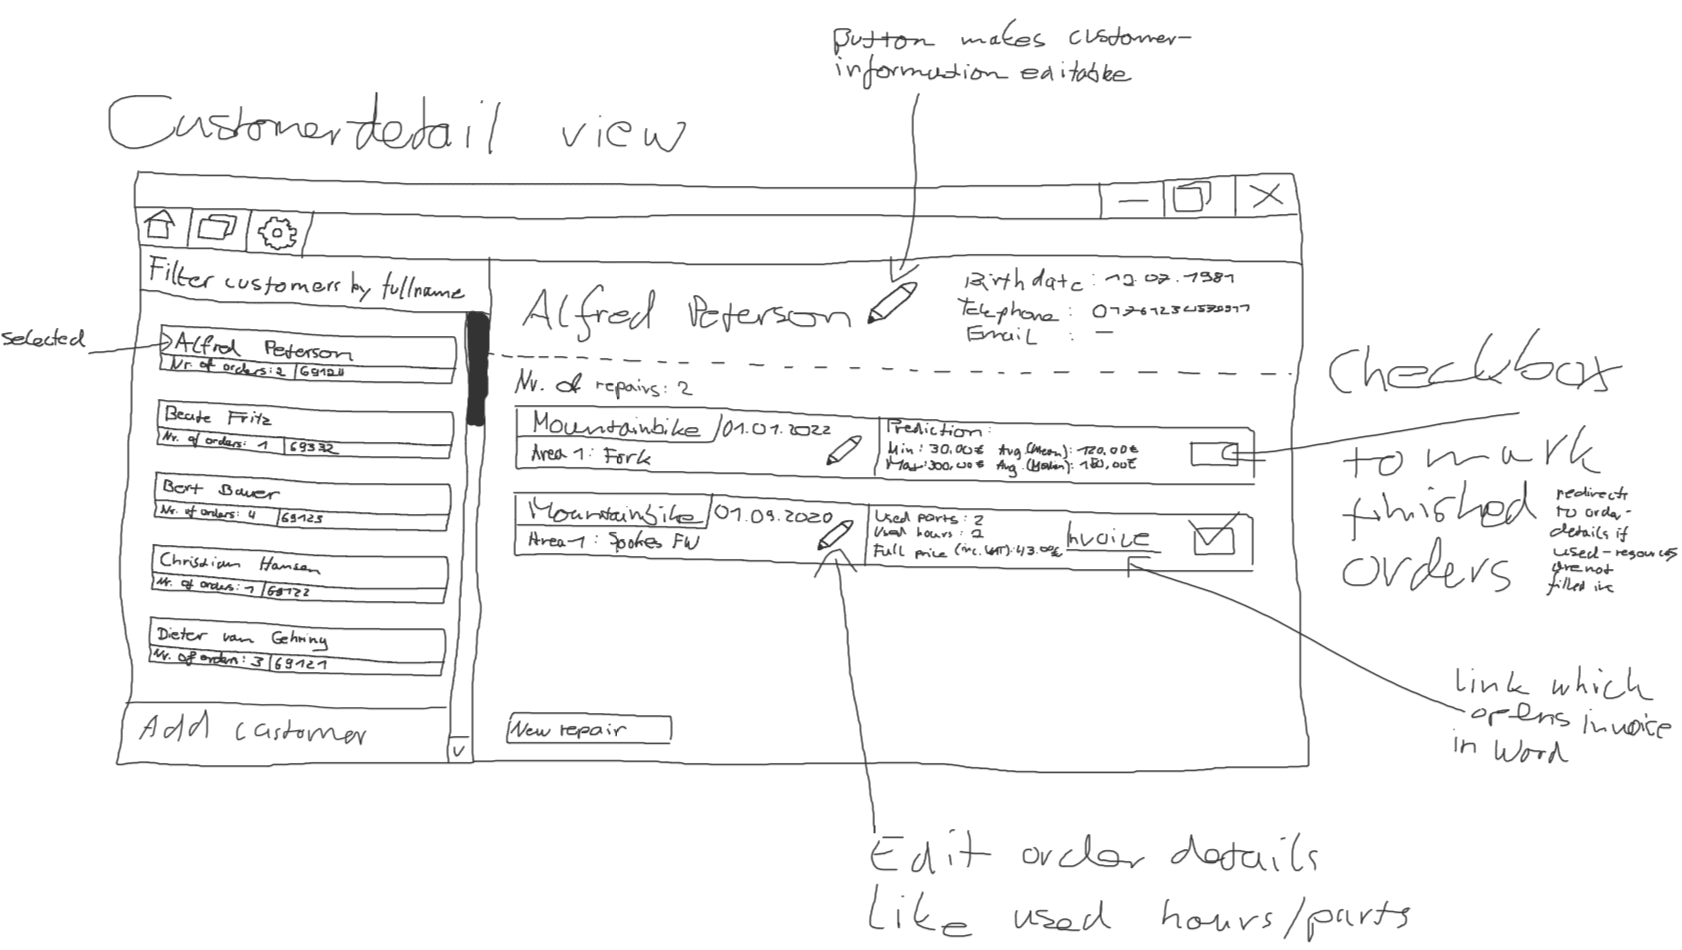 Button makes customer-
information editable
Customerdetail view
Filter customers by fullname
selected
Alfred Peterson
Nr. of orders: 2 | 69124
Beate Fritz
Nr. of orders: 1 | 69332
Bert Bauer
Nr. of orders: 4 | 69123
Christian Hansen
Nr. of orders: 1 | 69122
Dieter van Gehring
Nr. of orders: 3 | 69121
Add customer
v
Alfred Peterson
Birthdate: 12.07.1981
Telephone:
Email : –
Nr. of repairs: 2
Mountainbike / 01.01.2022
Area 1: Fork
Prediction:
Min: 30,00€ Avg.(Mean): 120,00€
Max: 300,00€ Avg.(Median): 180,00€
Mountainbike / 01.09.2020
Area 1: Spokes FW
Used parts: 2
Used hours: 2
Full price (inc. VAT): 43.00€
Invoice
New repair
Checkbox
to mark
finished
orders
redirects
to order-
details if
used-resources
are not
filled in
link which
opens invoice
in Word
Edit order details
like used hours/parts